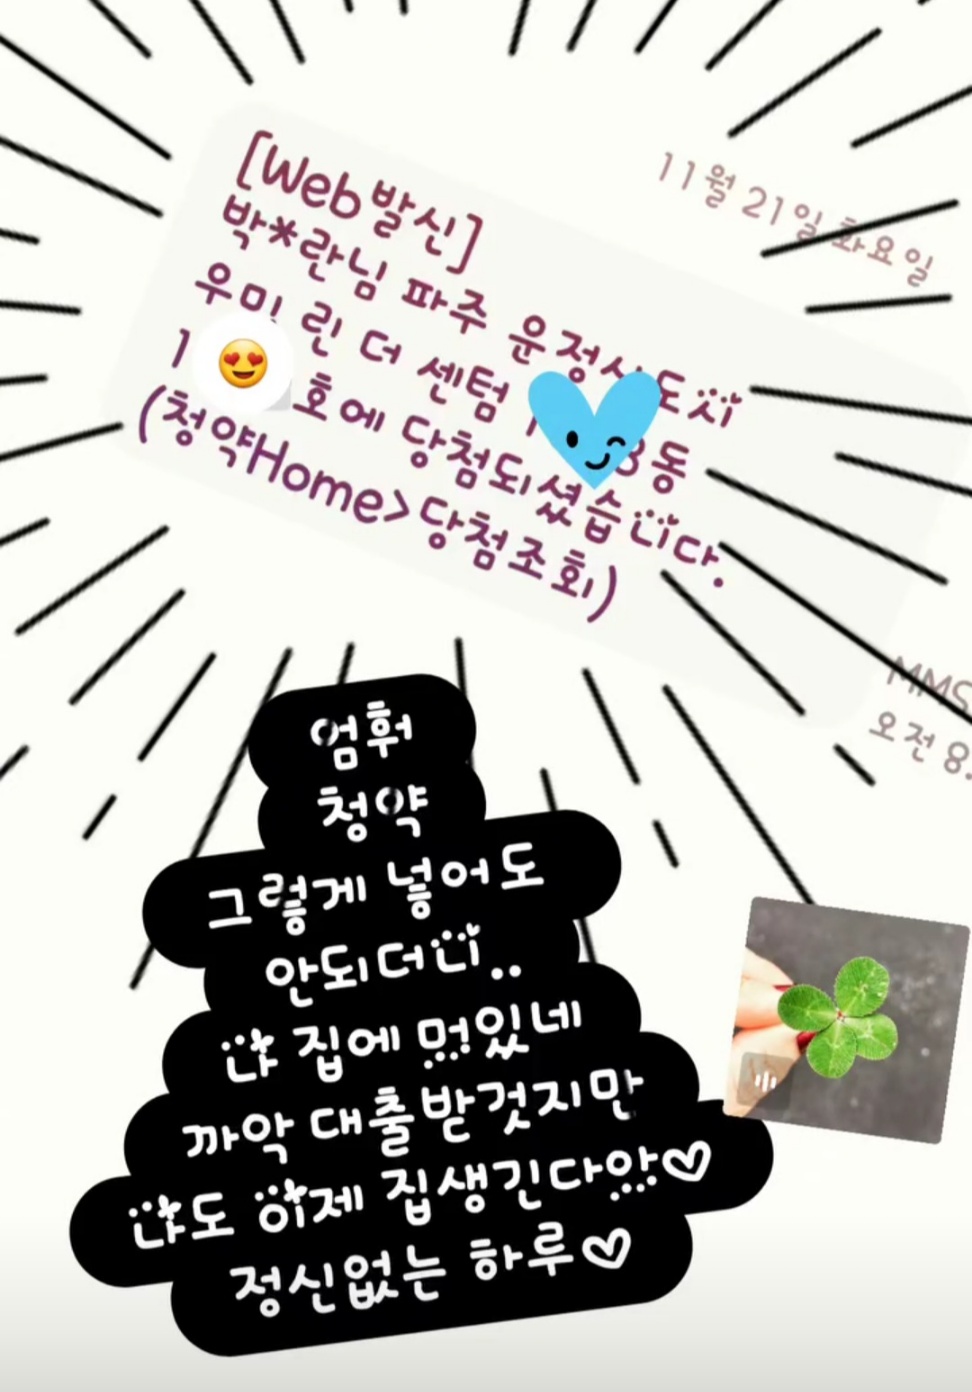 11월 21일 화요일
[Web발신]
박*란님 파주 운정신도시
우미 린 더 센텀 3동
1 호에 당첨되셨습니다.
(청약Home>당첨조회)
MMS
오전 8
엄훠
청약
그렇게 넣어도
안되더니..
나 집에 멌있네
까악 대출받겟지만
나도 이제 집생긴다앗♡
정신없는 하루♡